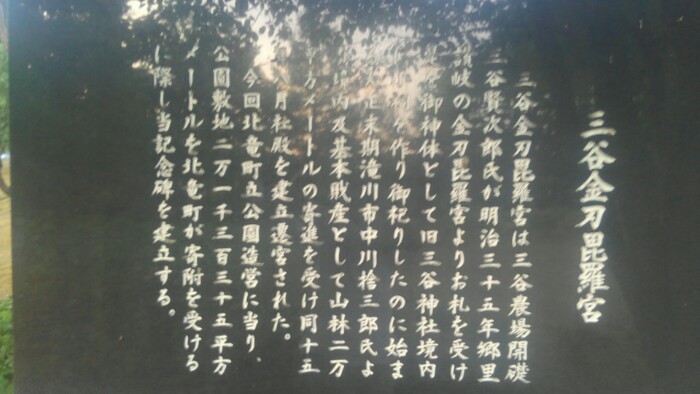 三谷金刀毘羅宮
三谷金刀毘羅宮は三谷農場開礎
三谷賢次郎氏が明治三十五年郷里
讃岐の金刀毘羅宮よりお札を受け
御神体として旧三谷神社境内
作り御祀りしたのに始ま
大正末期滝川市中川捨三郎氏よ
内及基本財産として山林二万
平方メートルの寄進を受け同十五
月社殿を建立遷宮された。
今回北竜町立公園造営に当り、
公園敷地二万一千三百三十五平方
メートルを北竜町が寄附を受ける
に際し当記念碑を建立する。